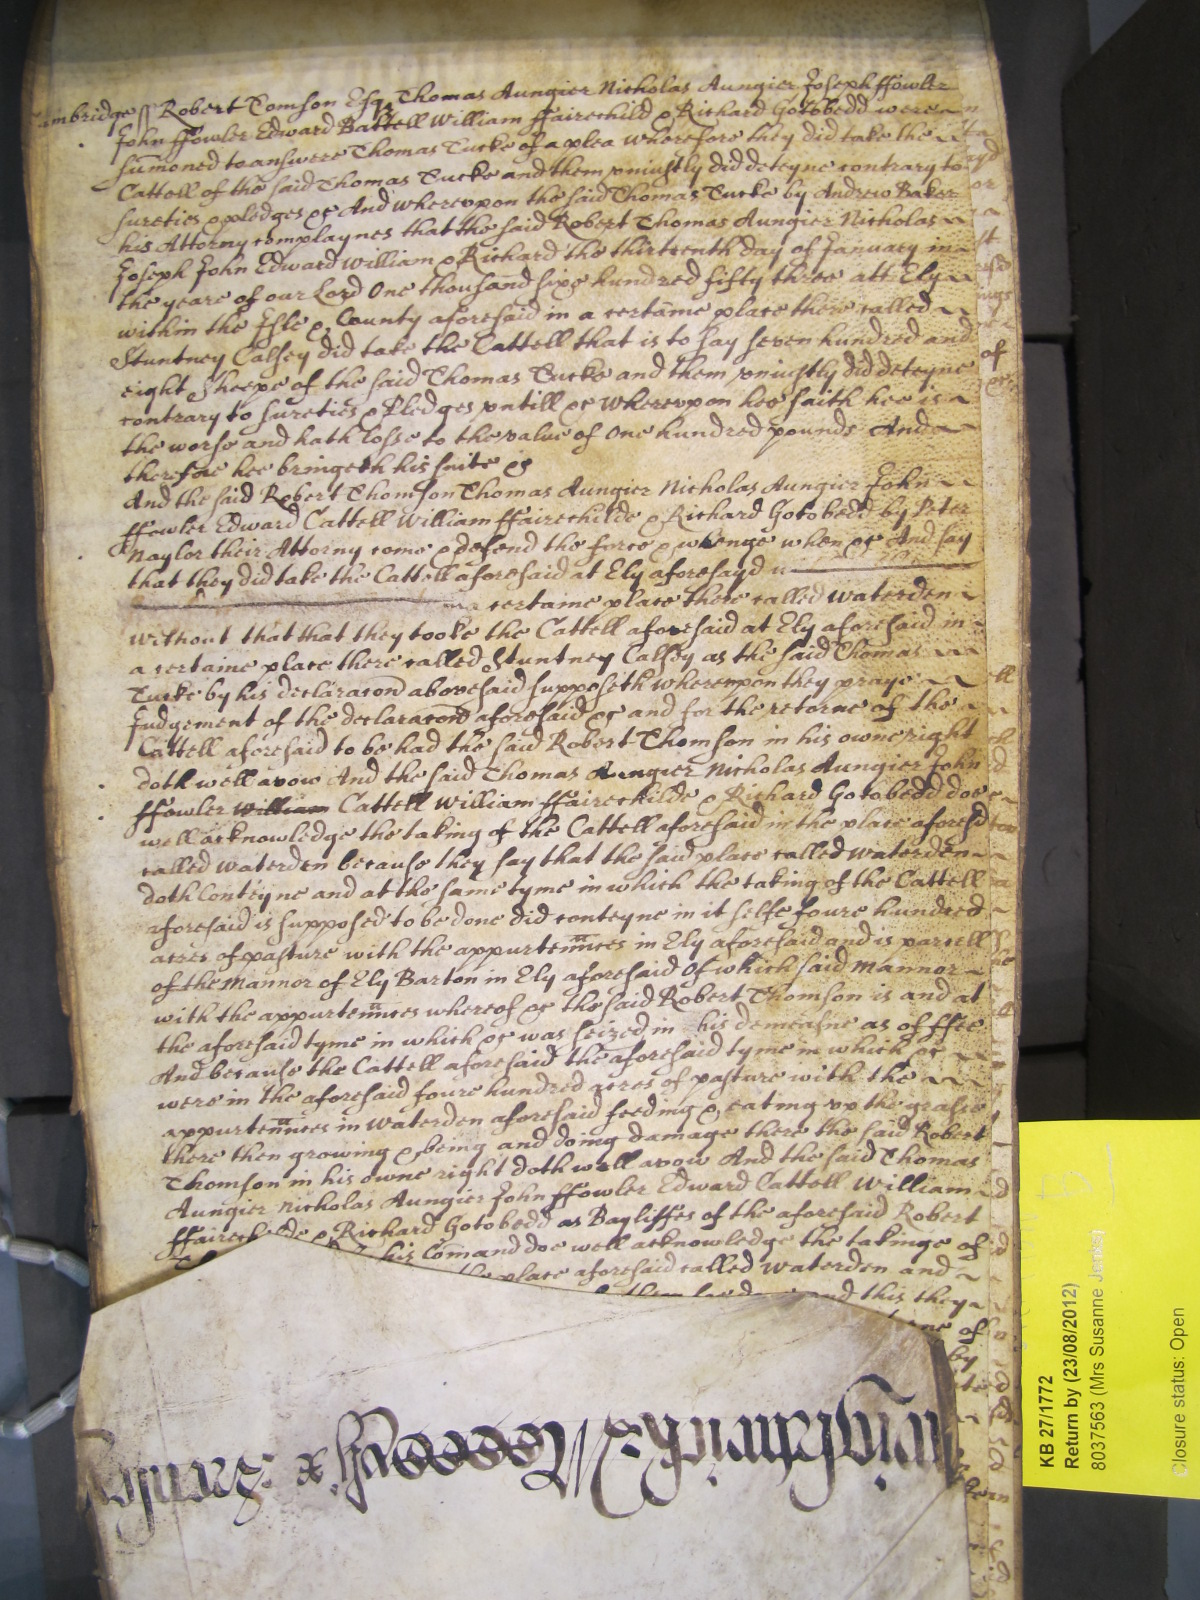 ambridge ss Robert Tomson Esqr Thomas Aungier Nicholas Aungier Joseph ffowler
John ffowler Edward Battell William ffairechild & Richard Gotobedd were
sumoned to answere Thomas Tucke of a plea wherefore they did take the
Cattell of the said Thomas Tucke and them uniustly did deteyne contrary to
sureties & pledges &c And whereupon the said Thomas Tucke by Andrew Baker
his Attorny complaynes that the said Robert Thomas Aungier Nicholas
Joseph John Edward William & Richard the thirteenth day of January in
the yeare of our Lord One thousand sixe hundred fifty three att Ely
within the Isle & County aforesaid in a certaine place there called
Stuntney Calsey did take the Cattell that is to say seven hundred and
eight Sheepe of the said Thomas Tucke and them uniustly did deteyne
contrary to sureties & Pledges untill &c Whereupon hee saith hee is
the worse and hath losse to the value of One hundred pounds And
therefore hee bringeth his suite &c
And the said Robert Thomson Thomas Aungier Nicholas Aungier John
ffowler Edward Cattell William ffairechilde & Richard Gotobedd by Peter
Naylor their Attorny come & defend the force & whenge when &c And say
that they did take the Cattell aforesaid at Ely aforesayd
a certaine place there called Waterden
without that that they tooke the Cattell aforesaid at Ely aforesaid in
a certaine place there called Stuntney Calsey as the said Thomas
Tucke by his declaracon abovesaid supposeth whereupon they praye
Judgement of the declaracon aforesaid &c and for the retorne of the
Cattell aforesaid to be had the said Robert Thomson in his owne right
doth well avow And the said Thomas Aungier Nicholas Aungier John
ffowler William Cattell William ffairechilde & Richard Gotobedd doe
well acknowledge the taking of the Cattell aforesaid in the place aforesd
called Waterden because they say that the said place called Waterden
doth Conteyne and at the same tyme in which the taking of the Cattell
aforesaid is supposed to be done did conteyne in it selfe foure hundred
acres of pasture with the appurtennces in Ely aforesaid and is parcell
of the Mannor of Ely Barton in Ely aforesaid Of which said Mannor
with the appurtennces whereof &c the said Robert Thomson is and at
the aforesaid tyme in which &c was seized in his demeasne as of ffee
And because the Cattell aforesaid the aforesaid tyme in which &c
were in the aforesaid foure hundred acres of pasture with the
appurtennces in Waterden aforesaid feeding & eating up the grasse
there then growing & being and doing damage there the said Robert
Thomson in his owne right doth well avow And the said Thomas
Aungier Nicholas Aungier John ffowler Edward Cattell William
ffairechilde & Richard Gotobedd as Bayliffes of the aforesaid Robert
his Comand doe well acknowledge the takinge of
the place aforesaid called Waterden and
and this they
of
by
KB 27/1772
Return by (23/08/2012)
8037563 (Mrs Susanne Jenks)
Closure status: Open